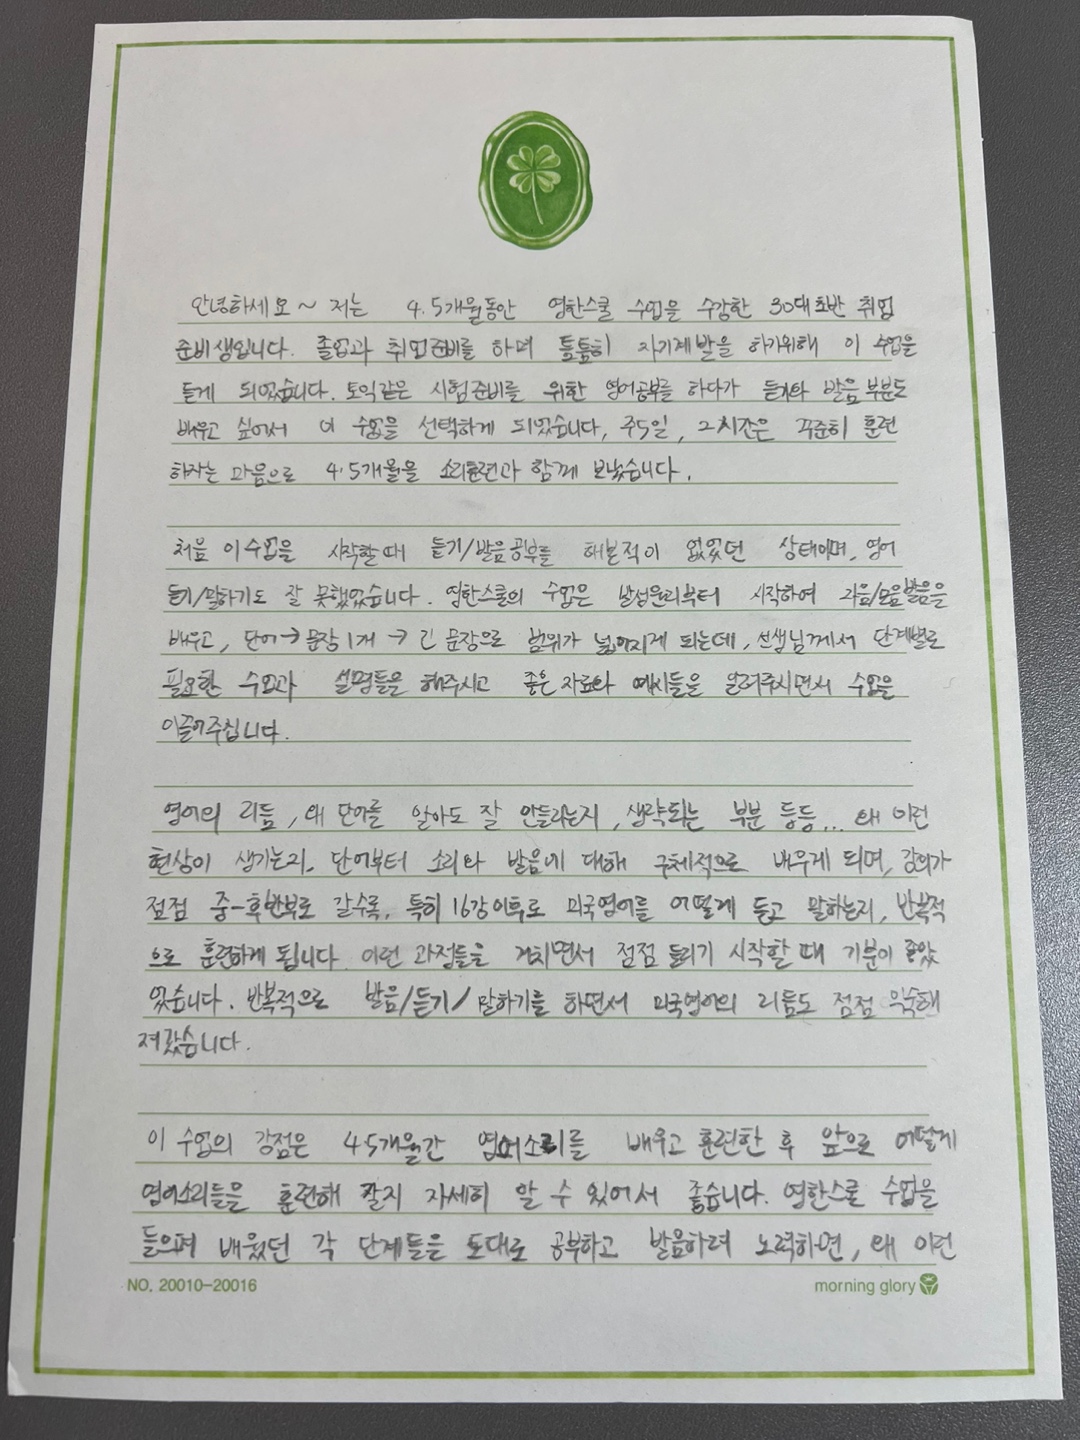 안녕하세요~ 저는 4.5개월동안 영한스쿨 수업을 수강한 30대초반 취업
준비생입니다. 졸업과 취업준비를 하며 틈틈히 자기계발을 하기위해 이 수업을
듣게 되었습니다. 토익같은 시험준비를 위한 영어공부를 하다가 듣기와 발음부분도
배우고 싶어서 이 수업을 선택하게 되었습니다. 주5일, 2시간은 꾸준히 훈련
하자는 마음으로 4.5개월을 소리훈련과 함께 보냈습니다.
처음 이수업을 시작할때 듣기/발음공부를 해본적이 없었던 상태이며, 영어
듣기/말하기도 잘 못했었습니다. 영한스쿨의 수업은 발성원리부터 시작하여 자음/모음발음을
배우고, 단어→문장1개→긴 문장으로 범위가 넓어지게 되는데, 선생님께서 단계별로
필요한 수업과 설명들을 해주시고 좋은자료와 예시들을 알려주시면서 수업을
이끌어주십니다.
영어의 리듬, 왜 단어를 알아도 잘 안들리는지, 생략되는 부분 등등... 왜 이런
현상이 생기는지. 단어부터 소리와 발음에 대해 구체적으로 배우게 되며, 강의가
점점 중-후반부로 갈수록, 특히 16강이후로 미국영어를 어떻게 듣고 말하는지, 반복적
으로 훈련하게 됩니다. 이런 과정들을 거치면서 점점 들리기 시작할 때 기분이 좋았
었습니다. 반복적으로 발음/듣기/말하기를 하면서 미국영어의 리듬도 점점 익숙해
져갔습니다.
이 수업의 강점은 4.5개월간 영어소리를 배우고 훈련한 후 앞으로 어떻게
영어소리들을 훈련해 갈지 자세히 알 수 있어서 좋습니다. 영한스쿨 수업을
들으며 배웠던 각 단계들을 토대로 공부하고 발음하려 노력하면, 왜 이런
NO. 20010-20016
morning glory